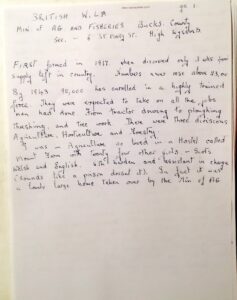 BRITISH W.LA
MIN of AG AND FISHERIES Bucks. County
Sec. - 6 ST MARY ST. High Wycombe
FIRST formed in 1937 when discovered only 3 wks food
supply left in country. Numbers never rose above
By 1943 90,000 has enrolled in a highly trained
force. They were expected to take on all the jobs
men had done from tractor driving to ploughing
thrashing and tree work. There were three divisions
Agriculture, Horticulture and Forestry.
I was in Agriculture so lived in a Hostel called
Mount from with twenty four other girls - Scots
Welsh and English. With warden and assistant in charge
(sounds like a prison doesn't it). In fact it was
a lovely large home taken over by the Min of AG